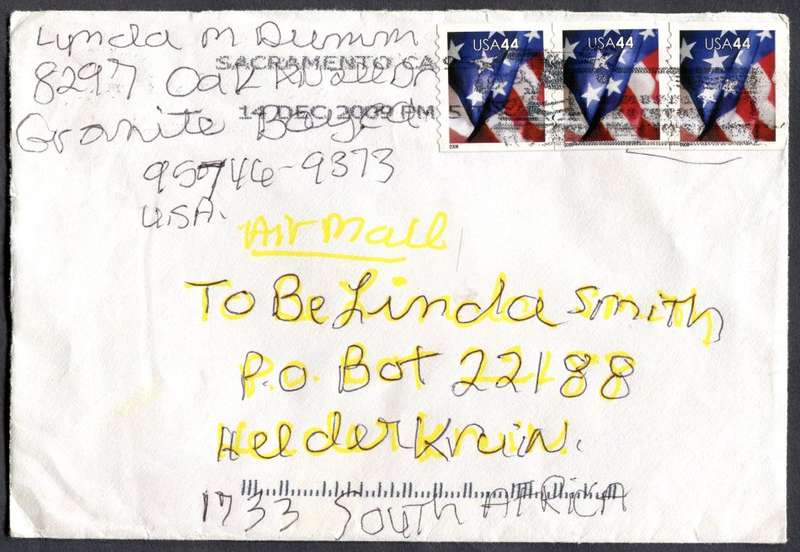 Lynda M Dumm
8297 Oak
Granite
95746-9373
U.S.A.
SACRAMENTO CA 9
14 DEC 2009 PM 5
USA 44
USA 44
USA 44
2008
2008
2008
Air Mail
To BeLinda Smith
P.O. Bot 22188
HelderKruin.
1733 South AFRiCA